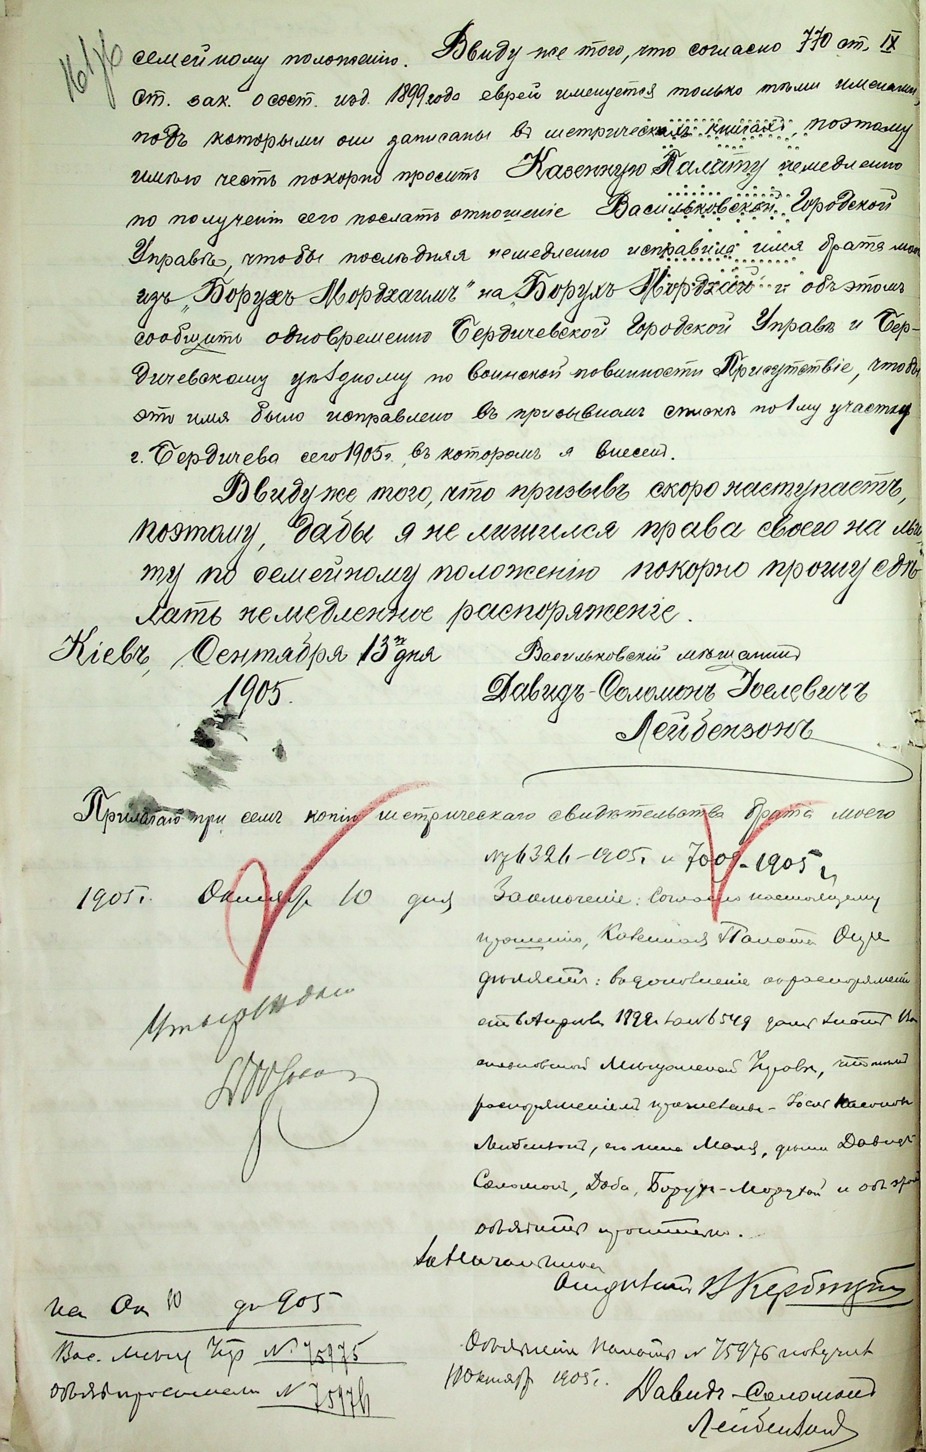 семейному положенію. Ввиду же того, что согласно 770 ст. IX
ст. зак. о сост. изд. 1899 года евреи именуется только тѣми именами,
подъ которыми они записаны въ метрическихъ книгахъ, поэтому
имѣю честь покорно просить Казенную Палату немедленно
по полученіи сего послать отношеніе Васильковской Городской
Управѣ, чтобы послѣдняя немедленно исправила имя брата моего
изъ „Борухъ Мордхаимъ" на „Борухъ Мордхай" и объ этомъ
сообщить одновременно Бердичевской Городской Управѣ и Бер-
дичевскому уѣздному по воинской повинности Присутствіе, чтобы
это имя было исправлено въ призывномъ спискѣ по 1му участку
г. Бердичева сего 1905 г., въ которомъ я внесен.
Ввиду же того, что призывъ скоро наступаетъ,
поэтому, дабы я не лишился права своего на льго-
ту по семейному положенію покорно прошу сдѣ-
лать немедленное распоряженіе.
Кіевъ, Сентября 13го дня
1905.
Васильковскій мѣщанинъ
Давидъ-Соломонъ Іоелевичъ
Лейбензонъ
Прилагаю при семъ копію метрическаго свидѣтельства брата моего
№ 6326-1905 г. и 7009-1905 г.
1905 г. Октября 10 дня
Заключеніе: Согласно настоящему
прошенію, Казенная Палата Опре
дѣляетъ: въ дополненіе къ распоряженію
1892 г. за № 6549 дать знать Ва
сильковской Мѣщанской Управѣ, что
распоряженіемъ
Лейбензонъ, его жена Маля, дѣти Давидъ
Соломонъ, Доба, Борухъ-Мордхай и объ этомъ
объявить просителю.
Утверждаю
За Начальника
Отдѣленія
на Ок 10 дня 905
Вас. Мѣщ Упр № 75975
объявл просителю № 75976
Объявленіе Палаты № 75976 получилъ
10 Октября 1905 г. Давидъ-Соломонъ
Лейбензонъ